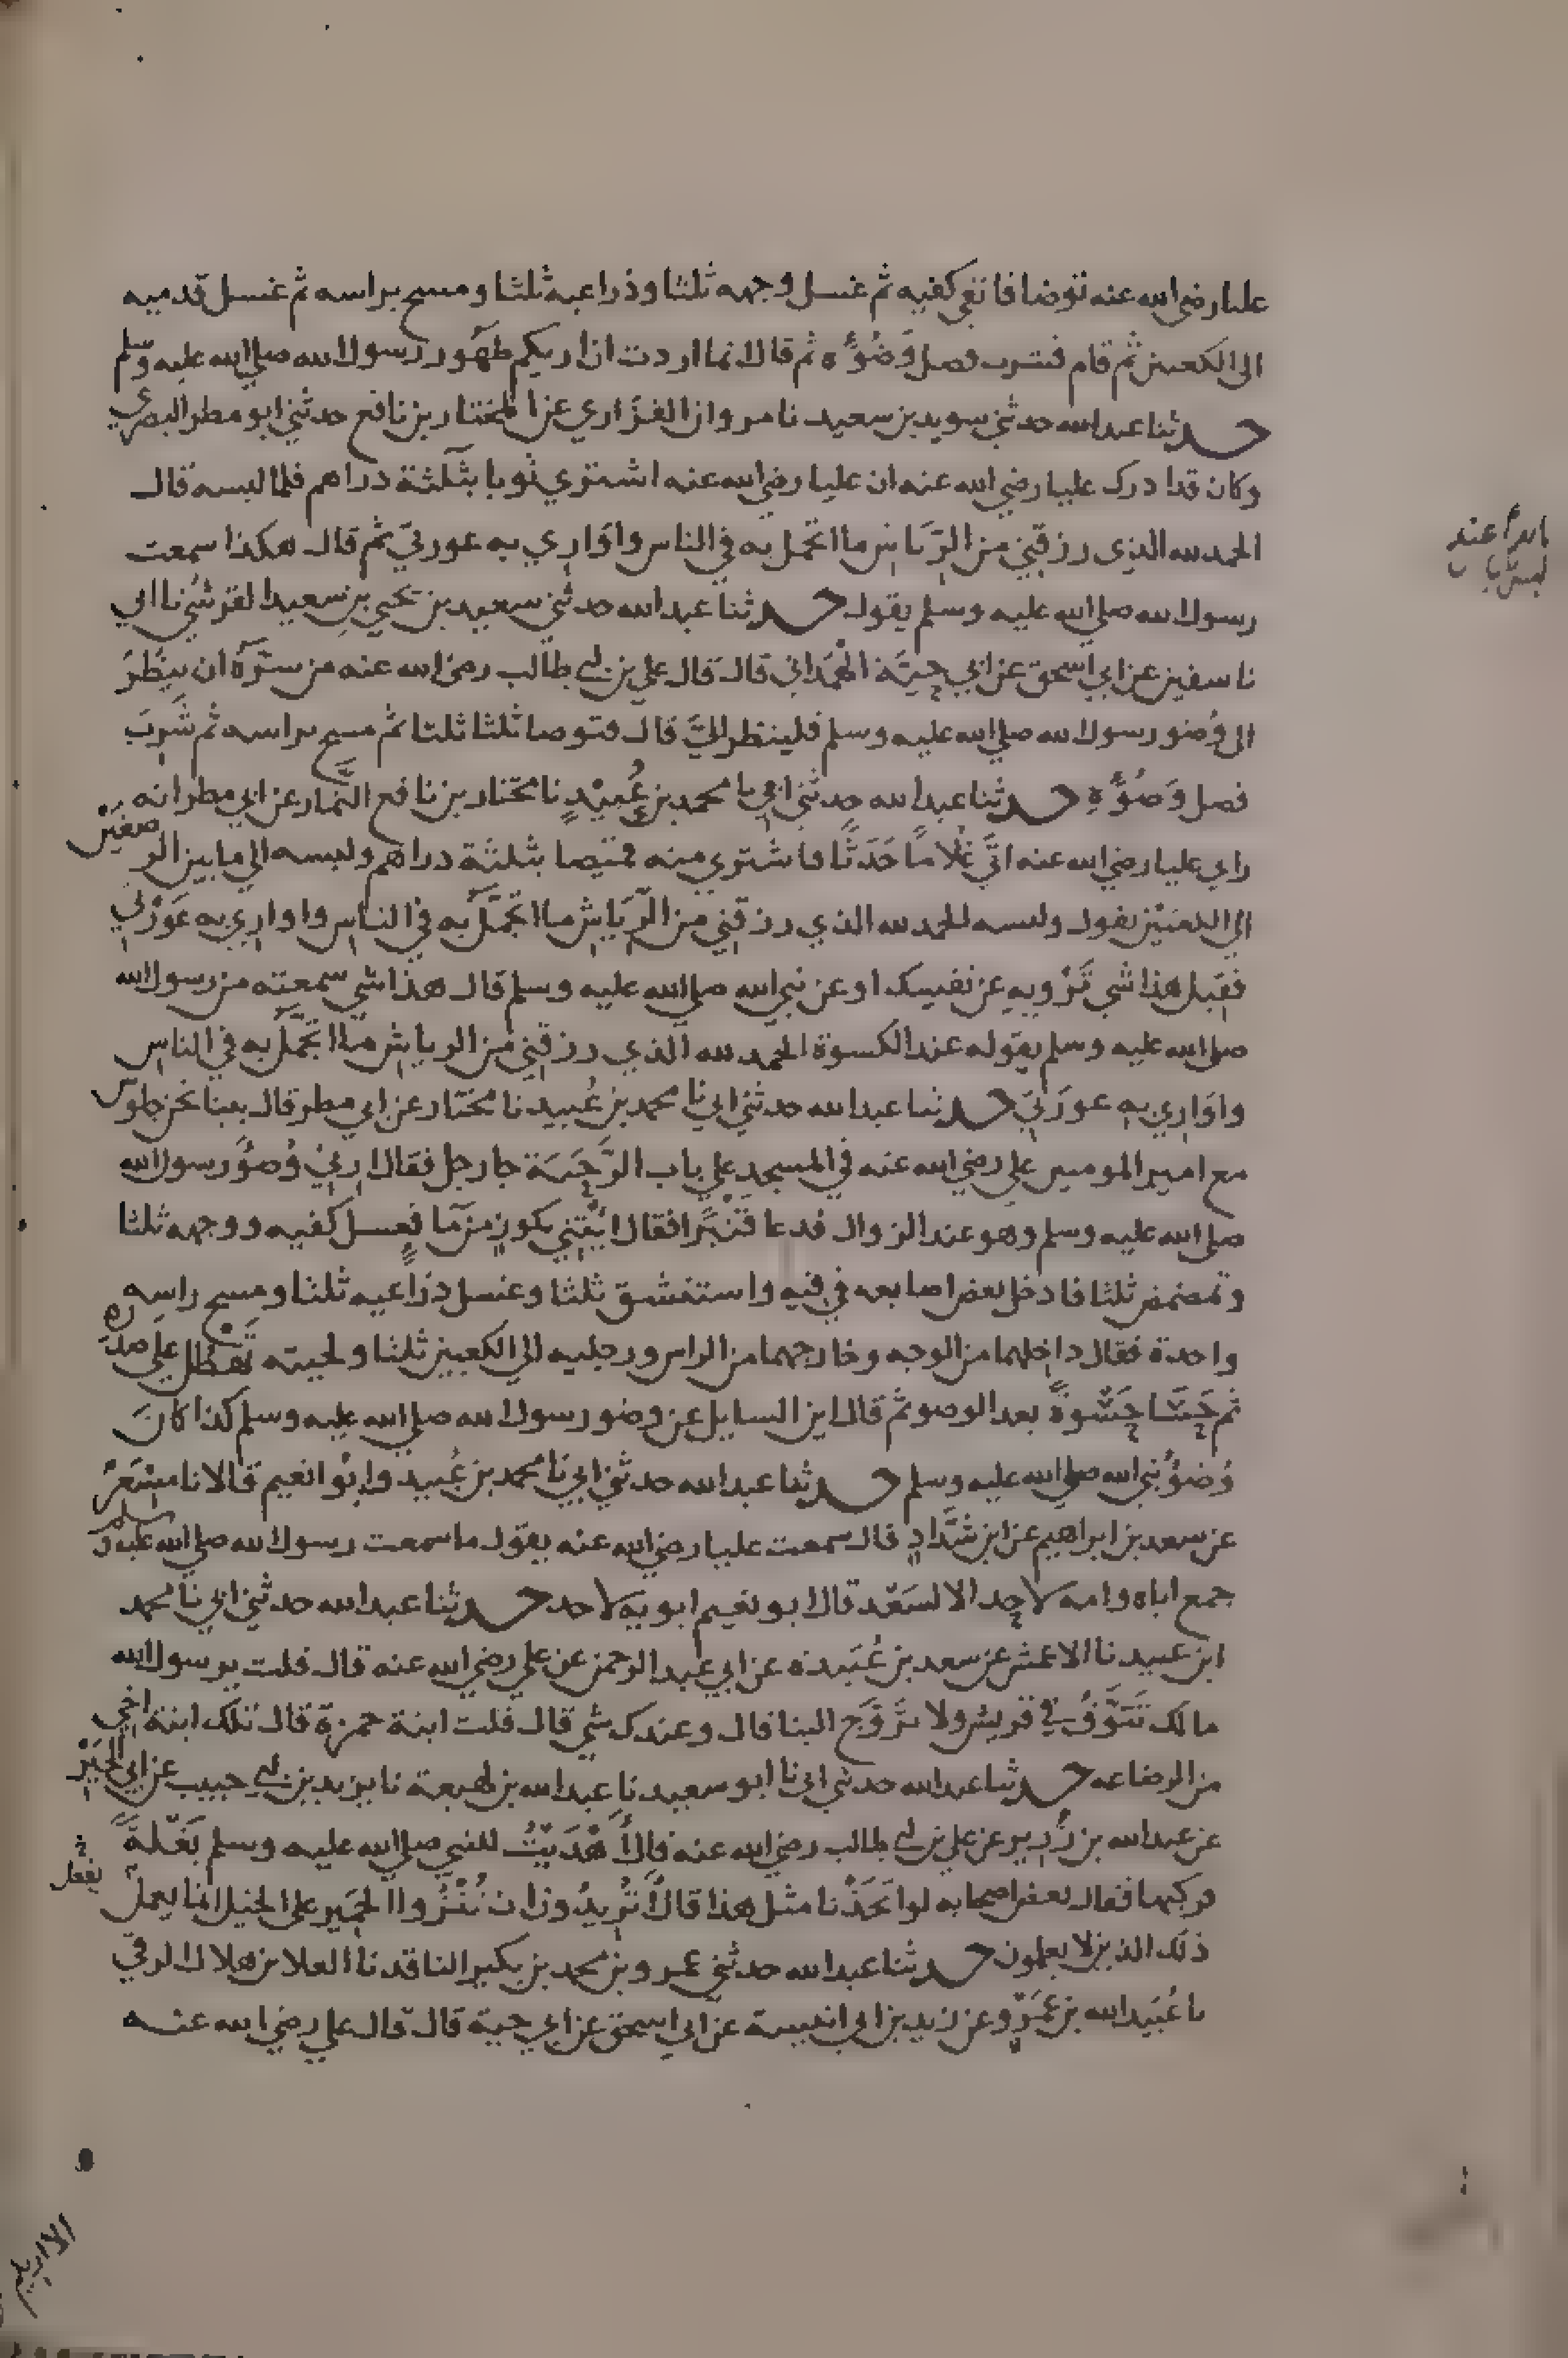 عليا رضي الله عنه توضا فانقى كفيه ثم غسل وجهه ثلثا وذراعيه ثلثا ومسح براسه ثم غسل قدميه
الى الكعبين ثم قام فشرب فضل وَضُوئه ثم قال انما اردت ان اريكم طهور رسول الله صلى الله عليه وسلم
حدثنا عبد الله حدثني سويد بن سعيد نا مروان الفزاري عن المختار بن نافع حدثني ابو مطر البصري
وكان قد ادرك عليا رضي الله عنه ان عليا رضي الله عنه اشترى ثوبا بثلثة دراهم فلما لبسه قال
الحمد لله الذي رزقني من الرياش ما اتجمل به في الناس واواري به عورتي ثم قال هكذا سمعت
رسول الله صلى الله عليه وسلم يقول حدثنا عبد الله حدثني سعيد بن يحيى بن سعيد القرشي نا ابي
نا سفين عن ابي اسحق عن ابي حية الهمداني قال قال علي بن ابي طالب رضي الله عنه من سره ان ينظر
الى وضو رسول الله صلى الله عليه وسلم فلينظر اليَّ قال فتوضا ثلثا ثلثا ثم مسح براسه ثم شرب
فضل وَضُوئه حدثنا عبد الله حدثني ابي نا محمد بن عُبيد نا مختار بن نافع التمار عن ابي مطر انه
راى عليا رضي الله عنه اتى غلاما حَدَثًا فاشترى منه قميصا بثلثة دراهم ولبسه الى ما بين الرصغين
الى الكعبين يقول ولبسه الحمد لله الذي رزقني من الرياش ما اتجمل به في الناس واواري به عورتي
فقيل هذا شي ترويه عن نفسك او عن نبي الله صلى الله عليه وسلم قال هذا شي سمعته من رسول الله
صلى الله عليه وسلم يقوله عند الكسوة الحمد لله الذي رزقني من الرياش ما اتجمل به في الناس
واواري به عورتي حدثنا عبد الله حدثني ابي نا محمد بن عُبيد نا مختار عن ابي مطر قال بينا نحن جلوس
مع امير المومنين علي رضي الله عنه في المسجد على باب الرحبة جا رجل فقال ارني وُضوُ رسول الله
صلى الله عليه وسلم وهو عند الزوال فدعا قَنْبَرًا فقال ائتني بكوز من ما فغسل كفيه ووجهه ثلثا
وتمضمض ثلثا فادخل بعض اصابعه في فيه واستنشق ثلثا وغسل ذراعيه ثلثا ومسح راسه
واحدة فقال داخلهما من الوجه وخارجهما من الراس ورجليه الى الكعبين ثلثا ولحيته تهطل على صدره
ثم حَسَا حَسْوةً بعد الوضو ثم قال اين السايل عن وضو رسول الله صلى الله عليه وسلم كذا كان
وُضوُ نبي الله صلى الله عليه وسلم حدثنا عبد الله حدثني ابي نا محمد بن عُبيد وابو نعيم قالا نا مِسْعَرٌ
عن سعد بن ابراهيم عن ابن شَدَّاد قال سمعت عليا رضي الله عنه يقول ما سمعت رسول الله صلى الله عليه وسلم
جمع اباه وامه لاحد الا لسَعْد قال ابو نعيم ابويه لاحد حدثنا عبد الله حدثني ابي نا محمد
ابن عبيد نا الاعمش عن سعد بن عُبَيدة عن ابي عبد الرحمن عن علي رضي الله عنه قال قلت يرسول الله
مالك تَتَوَّقُ في قريش ولا تَزَوَّج الينا قال وعندك شي قال قلت ابنة حمزة قال تلك ابنة اخي
من الرضاعه حدثنا عبد الله حدثني ابي نا ابو سعيد نا عبد الله بن لهيعة نا يزيد بن ابي حبيب عن ابي الخَيْر
عن عبد الله بن زُرير عن علي بن ابي طالب رضي الله عنه قال أُهْدِيَتْ للنبي صلى الله عليه وسلم بَغْلةٌ
فركبها فقال بعض اصحابه لو اتخَذْنا مثل هذا قال أتُريدُون ان تُنْزُوا الحمير على الخيل انما يفعل
ذلك الذين لا يعلمون حدثنا عبد الله حدثني عمرو بن محمد بن بكير الناقد نا العلا بن هلال الرقي
نا عُبَيد الله بن عَمْرٍو عن زيد بن ابي انيسة عن ابي اسحق عن ابي حية قال قال علي رضي الله عنه